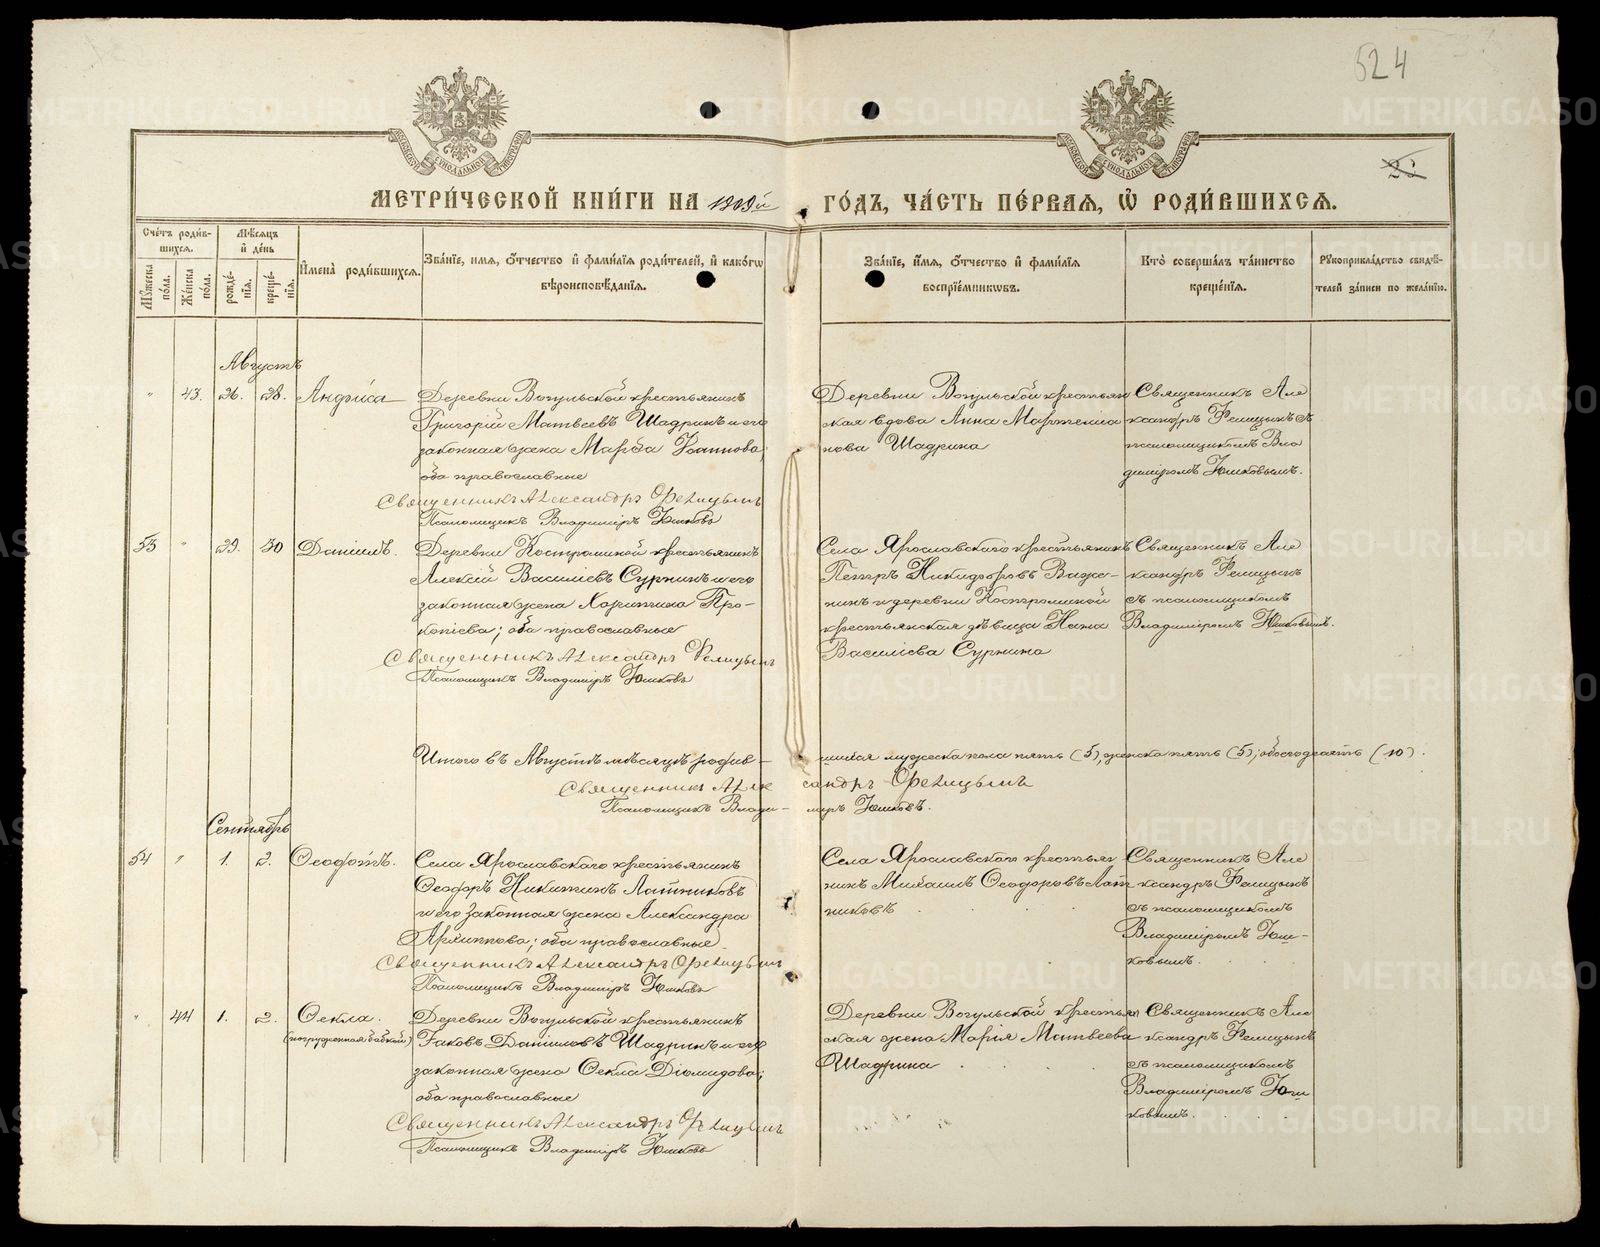 524
МЕТРИ́ЧЕСКОЙ КНИ́ГИ НА 1909й ГО́ДЪ, ЧА́СТЬ ПЕ́РВАЯ, Ѡ҆ РОДИ́ВШИХСЯ.
Сче́тъ роди́вшихся.
Мѣ́сяцъ и҆ де́нь
Мꙋ́жеска по́ла.
Же́нска по́ла.
рожде́нїя.
креще́нїя.
И҆мена̀ роди́вшихся.
Зва́нїе, и҆мя, ѻ҆́тчество и҆ фами́лїя роди́телей, и҆ како́гѡ вѣроисповѣ́данїя.
Зва́нїе, и҆́мя, ѻ҆́тчество и҆ фами́лїя воспрїе́мникѡвъ.
Кто̀ соверша́лъ та́инство креще́нїя.
Рꙋкоприкла́дство свидѣ́телей за́писи по жела́нїю.
Августъ
" 43. 26. 28. Анфиса
Деревни Вогульской крестьянинъ
Григорій Матвеевъ Шадринъ и его
законная жена Марѳа Іоаннова,
оба православные
Священникъ Александръ Ѳелицынъ
Псаломщикъ Владиміръ Юшковъ
Деревни Вогульской крестьян
ская вдова Анна
нова Шадрина
Священникъ Але
ксандръ Фелицынъ съ
псаломщикомъ Вла
диміромъ Юшковымъ.
53 " 29. 30 Даніилъ.
Деревни Костроминой крестьянинъ
Алексій Василіевъ Сурнинъ и его
законная жена Харитина Про-
копіева; оба православные
Священникъ Александръ Фелицынъ
Псаломщикъ Владиміръ Юшковъ
Села Ярославского крестьянинъ
Петръ Никифоровъ Важе-
нинъ и деревни Костроминой
крестьянская дѣвица Нина
Василіева Сурнина
Священникъ Але
ксандръ Фелицынъ
съ псаломщикомъ
Владиміромъ Юшковымъ.
Итого въ Августѣ мѣсяцѣ родив-
шихся мужеска пола пять (5), женска пять (5); обоего десять (10).
Священникъ Александръ Ѳелицынъ
Псаломщикъ Влади-
міръ Юшковъ.
Сентябрь
54 " 1. 2. Ѳеодотъ.
Села Ярославского крестьянинъ
Ѳеодоръ Никитинъ Латниковъ
и его законная жена Александра
Архиппова; оба православные
Священникъ Александръ Ѳелицынъ
Псаломщикъ Владиміръ Юшковъ
Села Ярославского крестья
нинъ Михаилъ Ѳеодоровъ Лат
никовъ
Священникъ Але
ксандръ Фелицынъ
съ псаломщикомъ
Владиміромъ Юш-
ковымъ.
" 44 1. 2. Ѳекла.
(погруженная бабкой)
Деревни Вогульской крестьянинъ
Іаковъ Даніиловъ Шадринъ и его
законная жена Ѳекла Діомидова;
оба православные
Священникъ Александръ Ѳелицынъ
Псаломщикъ Владиміръ Юшковъ
Деревни Вогульской крестьян
ская жена Марія Матвеева
Шадрина
Священникъ Але
ксандръ Фелицынъ
съ псаломщикомъ
Владиміромъ Юш
ковымъ.
METRIKI.GASO-URAL.RU